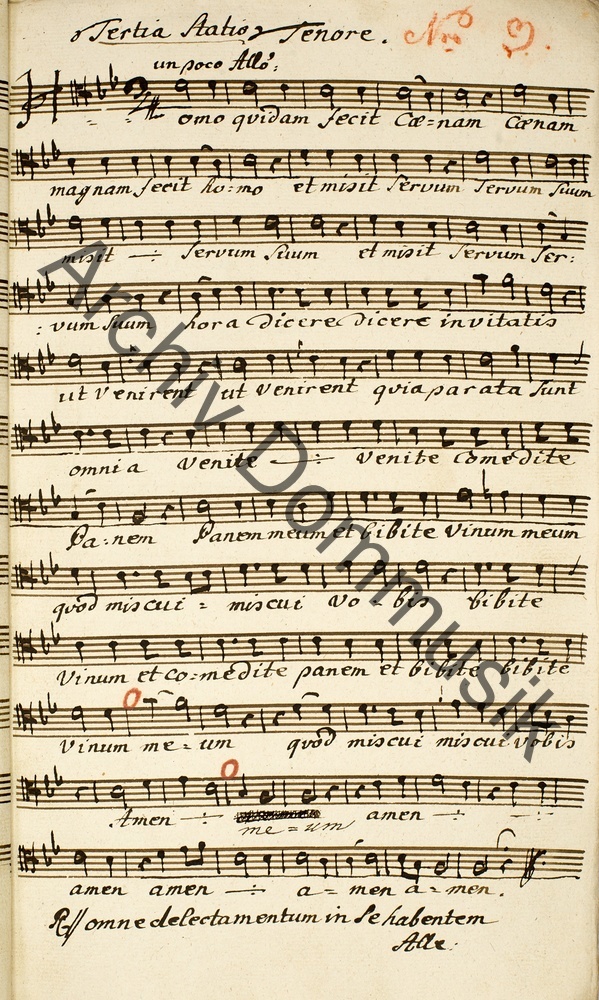 Tertia Statio Tenore. Nro 9.
un poco Allo:
omo quidam fecit Cœ=nam Cœnam
magnam fecit ho=mo et misit servum servum suum
misit servum suum et misit servum ser:
:vum suum hora dicere dicere invitatis
ut venirent ut venirent quia parata sunt
omnia venite venite comedite
Pa:nem Panem meum et bibite vinum meum
quod miscui = miscui vo=bis bibite
vinum et co=medite panem et bibite bibite
vinum me=um quod miscui miscui vobis
Amen me=um amen
amen amen a=men a=men.
R// omne delectamentum in se habentem
Alle:
Archiv Dommusik